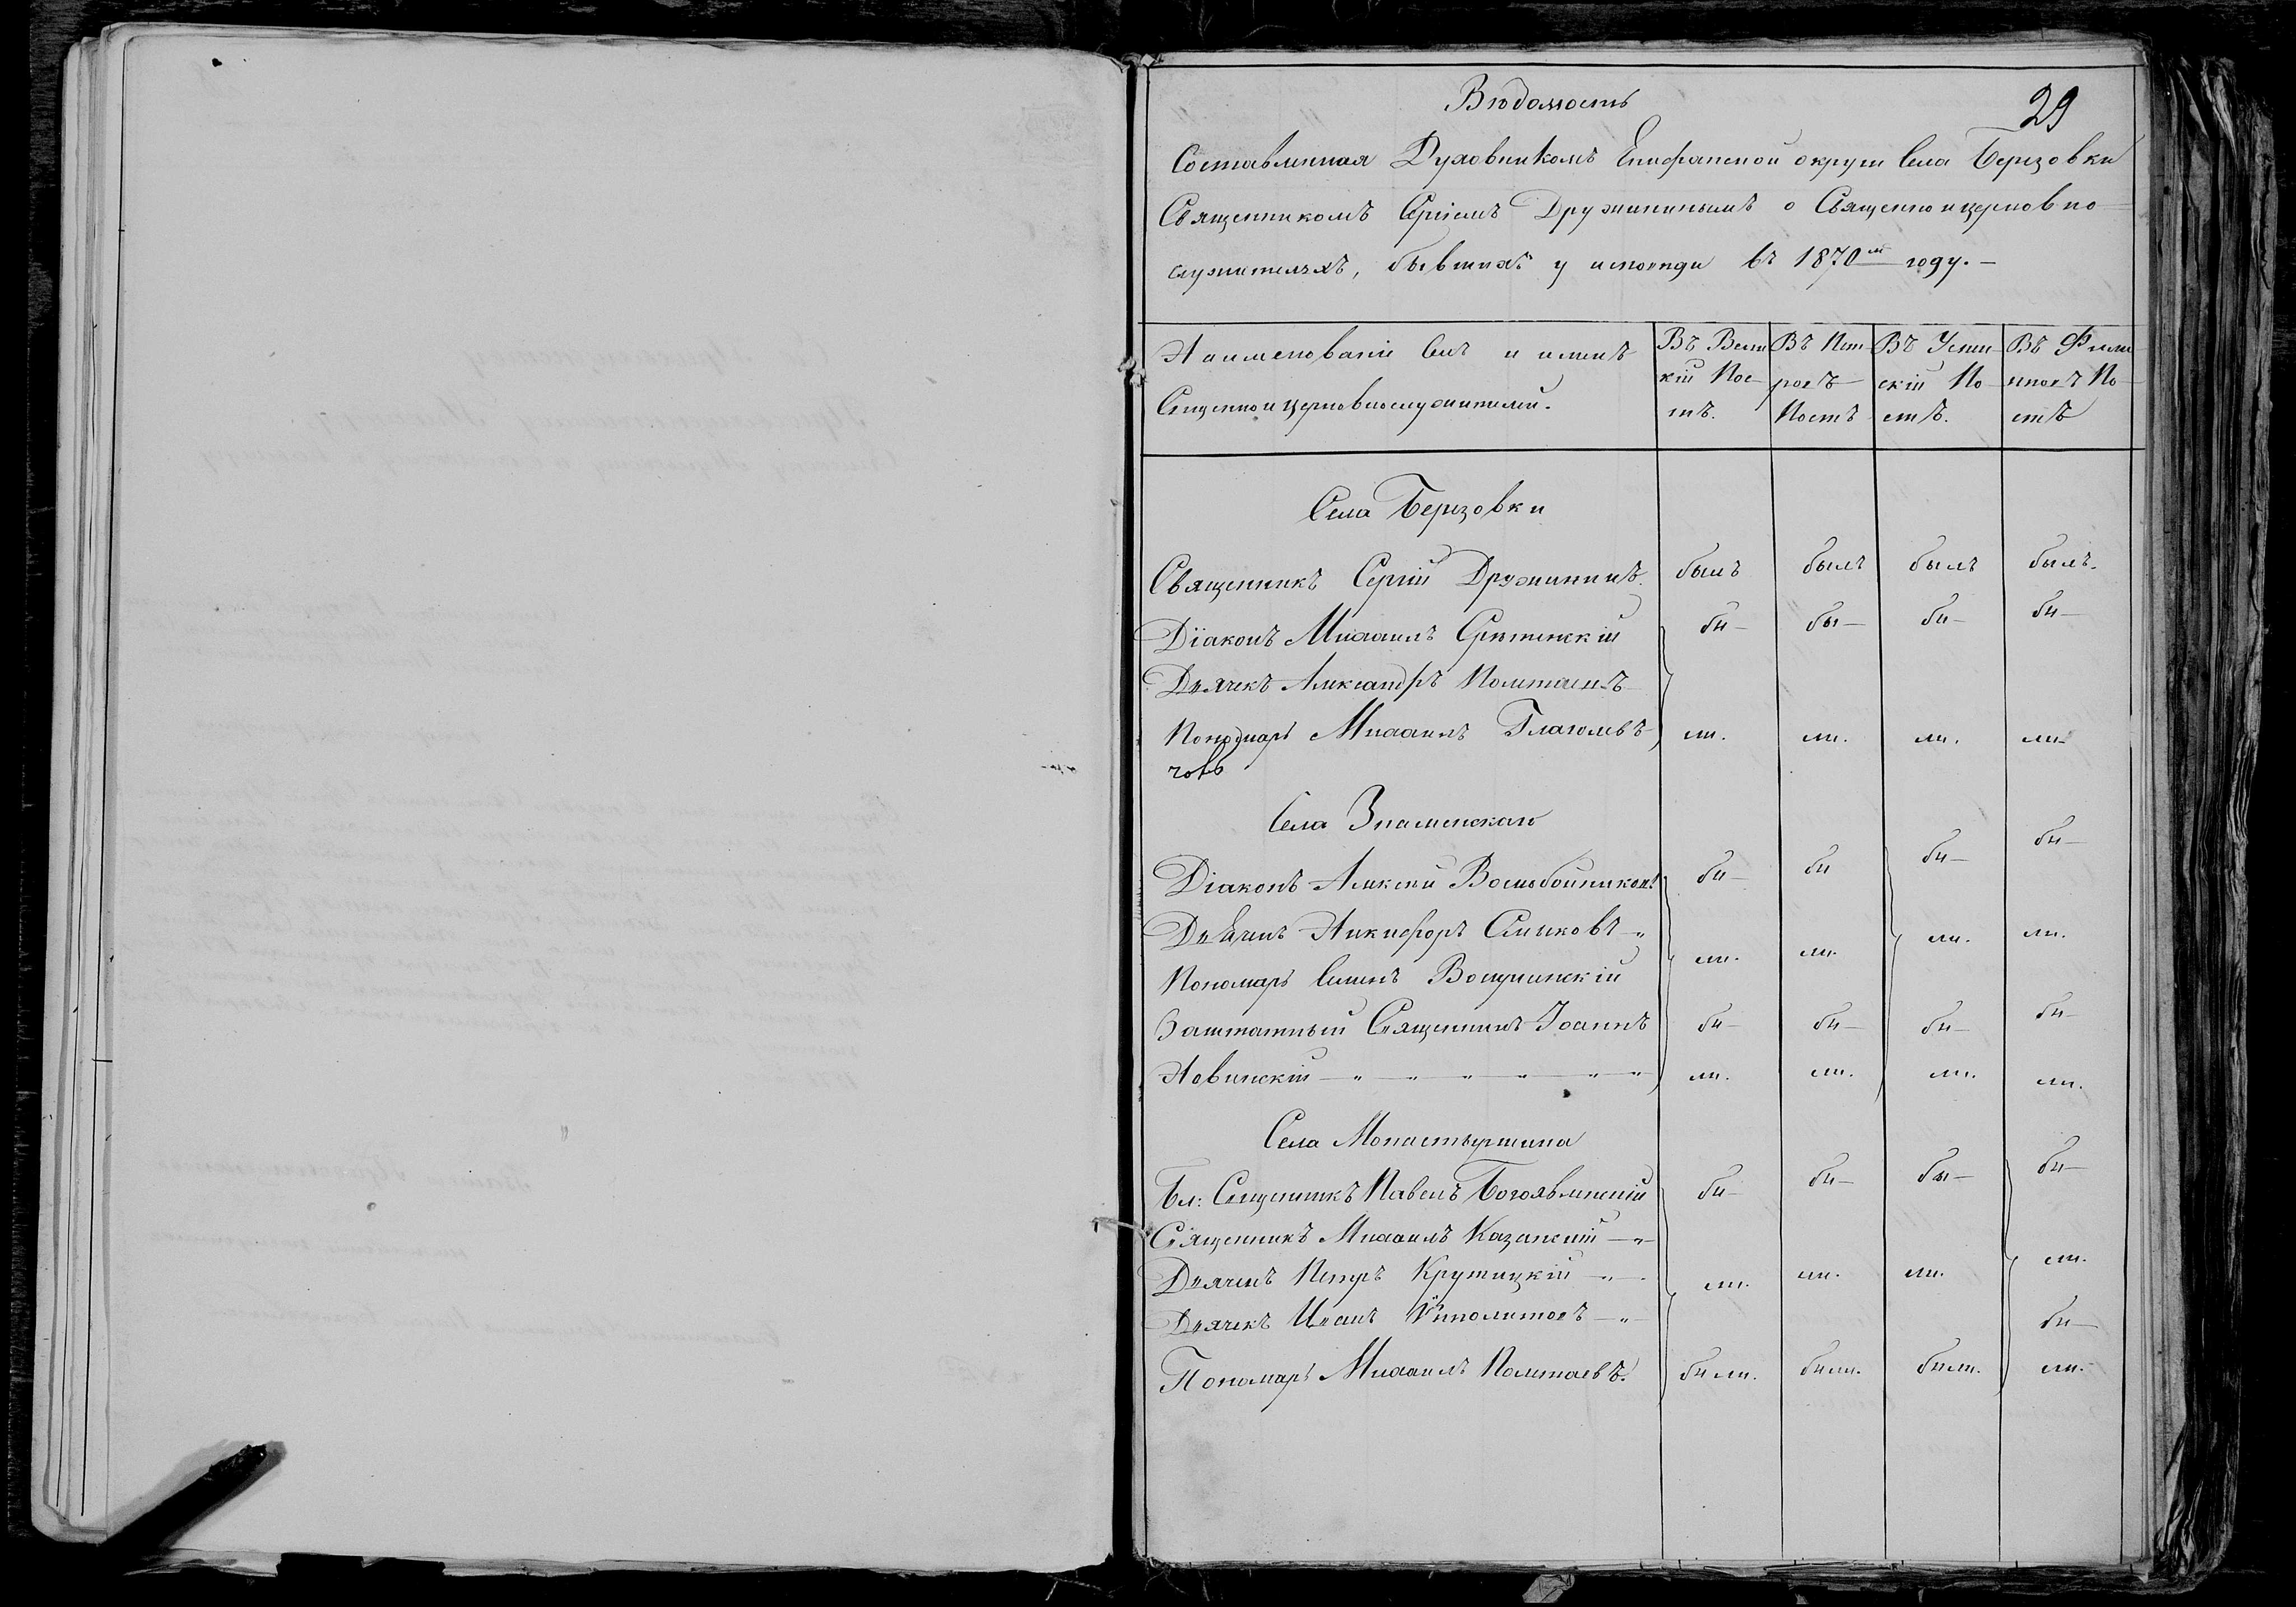 29
Вѣдомость
Составленная Духовникомъ Епифанской округи Села Березовки
Священникомъ Сергіемъ Дружининымъ о Священноицерковно-
служителяхъ, бывшихъ у исповѣди въ 1870м году.—
Наименованіе Селъ и именъ
Священноицерковнослужителей.
Въ Вели
кій Пос-
тъ.
Въ Пет-
ровъ
Постъ
Въ Успен-
скій По-
стъ.
Въ Фили
пповъ По-
стъ
Села Березовки
Священникъ Сергій Дружининъ. былъ былъ былъ былъ.
Діаконъ Михаилъ Срѣтенскій бы— бы— бы— бы—
Дьячекъ Александръ Полетаевъ
Пономарь Михаилъ Глаголевъ ли. ли. ли. ли.
Села Знаменскаго
Діаконъ Алексѣй Воскобойниковъ бы— бы бы— бы—
Дьячекъ Никифоръ —„ ли. ли. ли. ли.
Пономарь Семенъ
Заштатный Священникъ Іоаннъ бы— бы— бы— бы—
Новинскій —„—„—„—„—„—„ ли. ли. ли. ли.
Села Монастырщина
Бл: Священникъ Павелъ Богоявленскій бы— бы— бы— бы—
Священникъ Михаилъ Казанскій —„—
Дьячекъ Петръ Крутицкій —„— ли. ли. ли. ли.
Дьячекъ Иванъ Ипполитовъ —„— бы—
Пономарь Михаилъ Полетаевъ. были. были. были. ли.